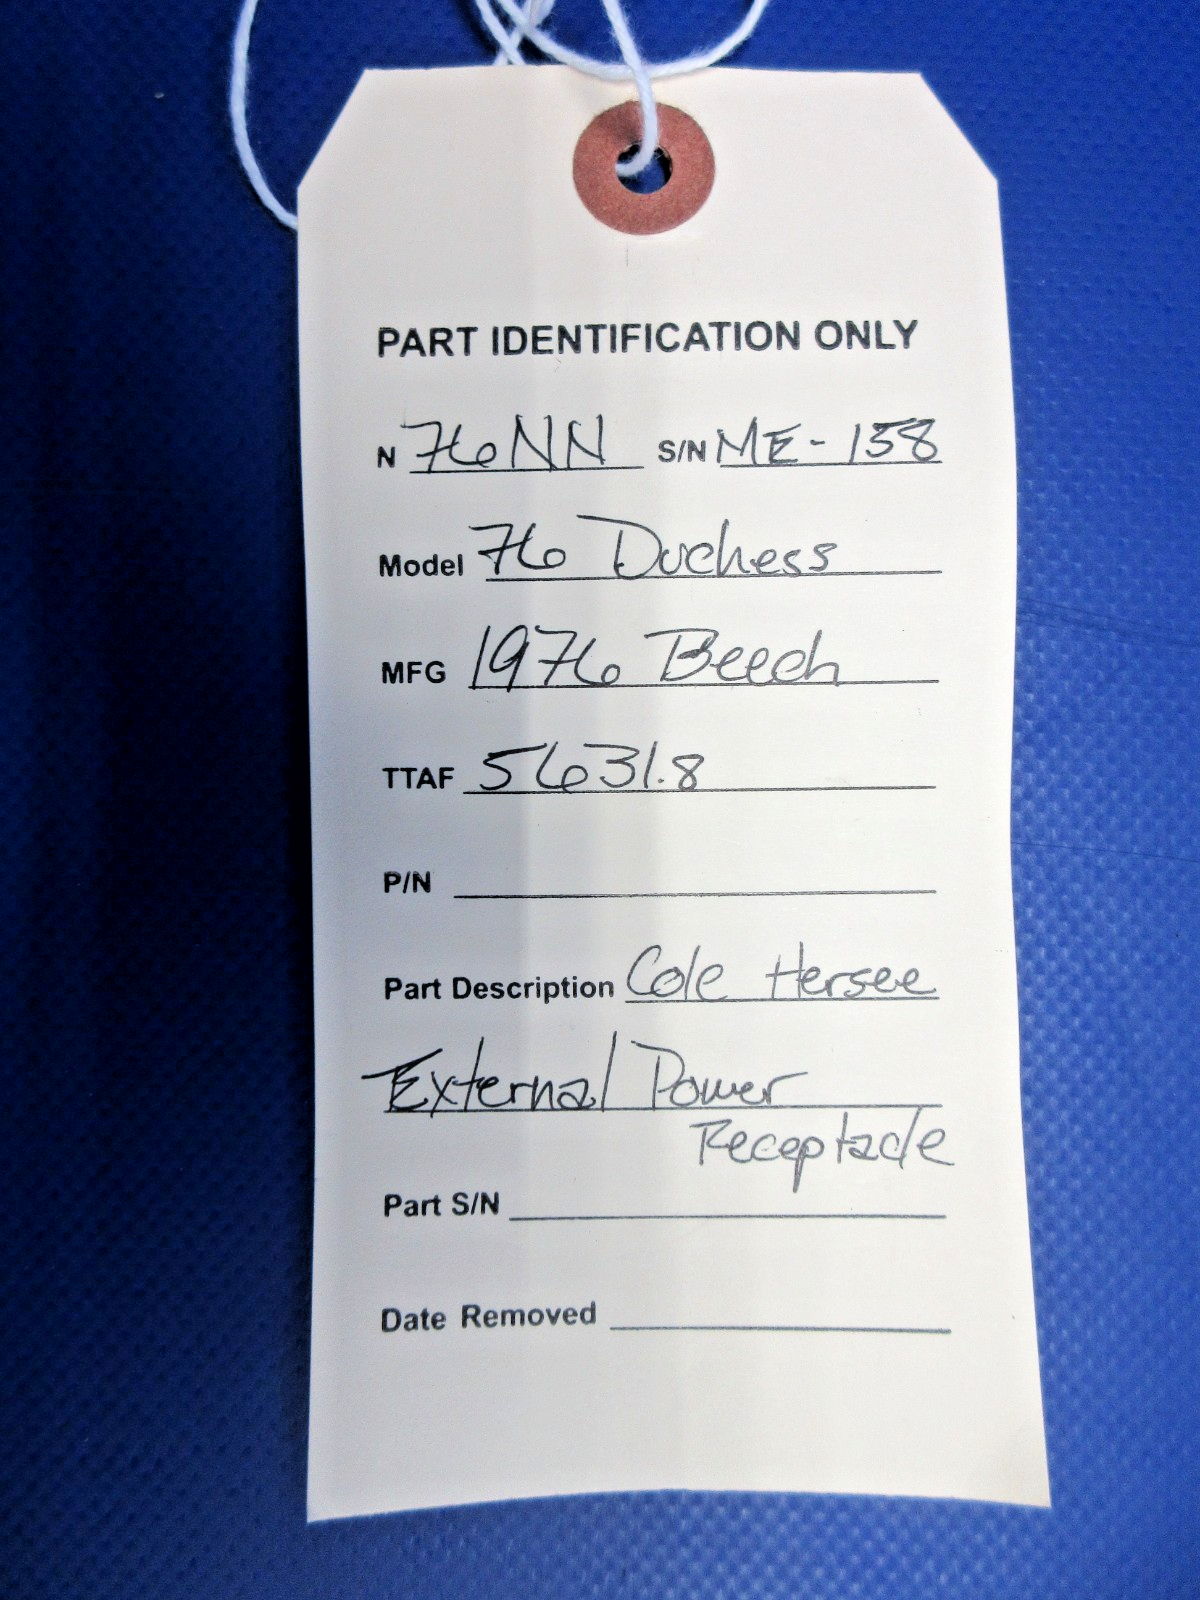 PART IDENTIFICATION ONLY
N 76NN S/N ME-158
Model 76 Duchess
MFG 1976 Beech
TTAF 5631.8
P/N
Part Description Cole Hersee
External Power
Receptacle
Part S/N
Date Removed